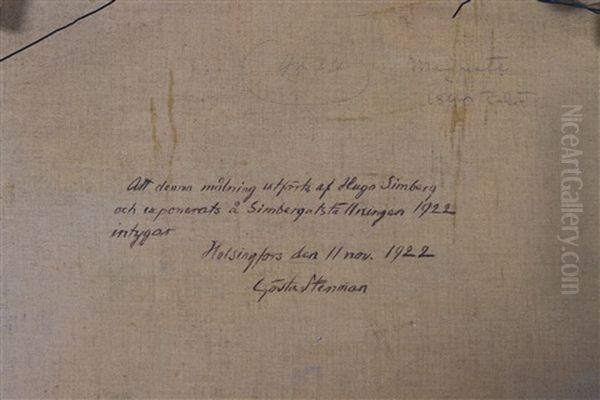 Att denna målning utförts af Hugo Simberg
och exponerats å Simbergutställningen 1922
intygar
Helsingfors den 11 nov. 1922
Gösta Stenman
NiceArtGallery.com